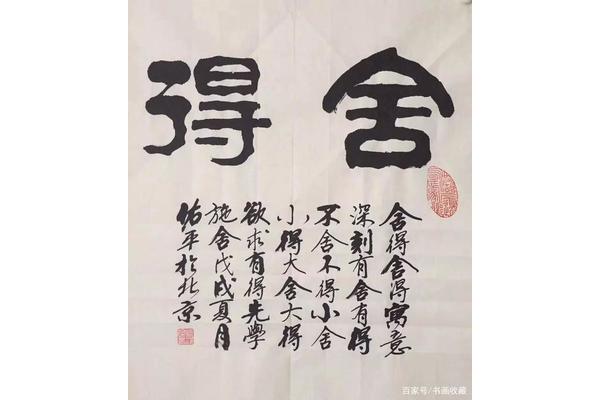 舍得
舍得舍得寓意
深刻有舍有得
不舍不得小舍
小得大舍大得
欲求有得先學
施舍戊戌夏月
佑平於北京
百家号/书画收藏